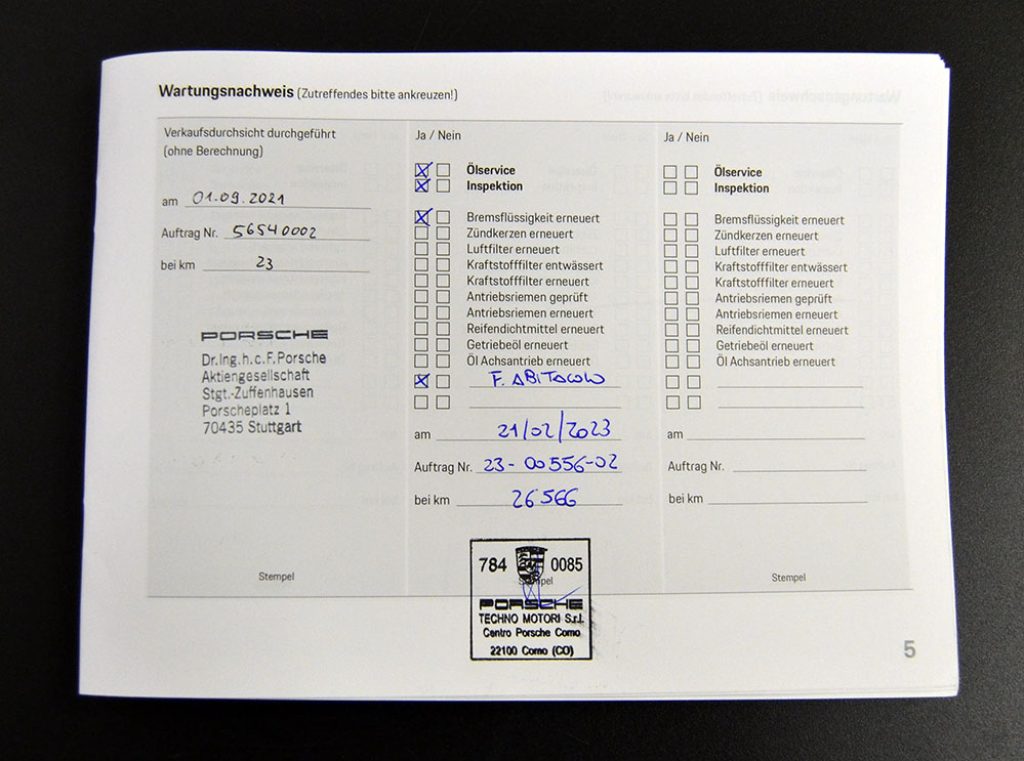 Wartungsnachweis (Zutreffendes bitte ankreuzen!)
Verkaufsdurchsicht durchgeführt
(ohne Berechnung)
am 01.09.2021
Auftrag Nr. 56540002
bei km 23
PORSCHE
Dr.Ing.h.c.F.Porsche
Aktiengesellschaft
Stgt.-Zuffenhausen
Porscheplatz 1
70435 Stuttgart
Stempel
Ja / Nein
Ölservice
Inspektion
Bremsflüssigkeit erneuert
Zündkerzen erneuert
Luftfilter erneuert
Kraftstofffilter entwässert
Kraftstofffilter erneuert
Antriebsriemen geprüft
Antriebsriemen erneuert
Reifendichtmittel erneuert
Getriebeöl erneuert
Öl Achsantrieb erneuert
F. ABITACOLO
am 21/02/2023
Auftrag Nr. 23-00556-02
bei km 26566
784 0085
Stempel
PORSCHE
TECHNO MOTORI S.r.l.
Centro Porsche Como
22100 Como (CO)
Ja / Nein
Ölservice
Inspektion
Bremsflüssigkeit erneuert
Zündkerzen erneuert
Luftfilter erneuert
Kraftstofffilter entwässert
Kraftstofffilter erneuert
Antriebsriemen geprüft
Antriebsriemen erneuert
Reifendichtmittel erneuert
Getriebeöl erneuert
Öl Achsantrieb erneuert
am
Auftrag Nr.
bei km
Stempel
5